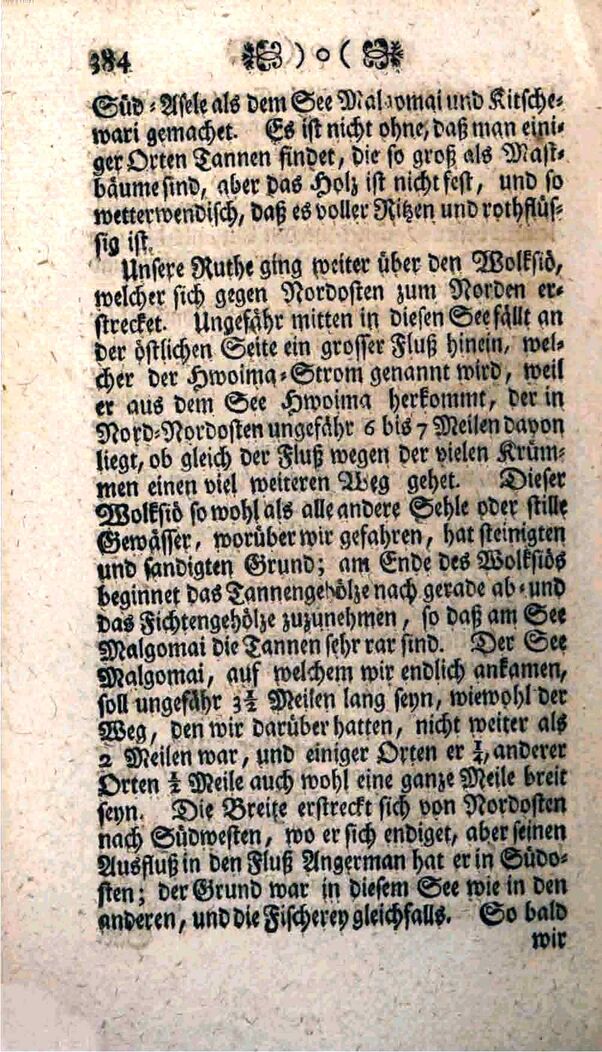 384 ) o (
Süd-Asele als dem See Malgomai und Kitsche-
wari gemachet. Es ist nicht ohne, daß man eini-
ger Orten Tannen findet, die so groß als Mast-
bäume sind, aber das Holz ist nicht fest, und so
wetterwendisch, daß es voller Ritzen und rothflüs-
sig ist.
Unsere Ruthe ging weiter über den Wolksiö,
welcher sich gegen Nordosten zum Norden er-
strecket. Ungefähr mitten in diesen See fällt an
der östlichen Seite ein grosser Fluß hinein, wel-
cher der Hwoima-Strom genannt wird, weil
er aus dem See Hwoima herkommt, der in
Nord-Nordosten ungefähr 6 bis 7 Meilen davon
liegt, ob gleich der Fluß wegen der vielen Krüm-
men einen viel weiteren Weg gehet. Dieser
Wolksiö so wohl als alle andere Sehle oder stille
Gewässer, worüber wir gefahren, hat steinigten
und sandigten Grund; am Ende des Wolksiös
beginnet das Tannengehölze nach gerade ab- und
das Fichtengehölze zuzunehmen, so daß am See
Malgomai die Tannen sehr rar sind. Der See
Malgomai, auf welchem wir endlich ankamen,
soll ungefähr 3½ Meilen lang seyn, wiewohl der
Weg, den wir darüber hatten, nicht weiter als
2 Meilen war, und einiger Orten er ¼, anderer
Orten ½ Meile auch wohl eine ganze Meile breit
seyn. Die Breite erstreckt sich von Nordosten
nach Südwesten, wo er sich endiget, aber seinen
Ausfluß in den Fluß Angerman hat er in Südo-
sten; der Grund war in diesem See wie in den
anderen, und die Fischerey gleichfalls. So bald
wir